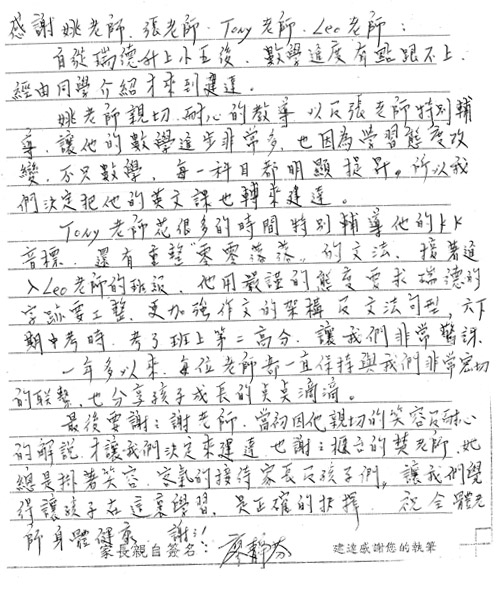 感謝姚老師．張老師．Tony老師．Leo老師：
自從瑞德升上小五後，數學進度有點跟不上．
經由同學介紹才來到建達。
姚老師親切．耐心的教導以及張老師特別輔
導，讓他的數學進步非常多，也因為學習態度改
變，不只數學，每一科目都明顯提昇。所以我
們決定把他的英文課也轉來建達。
Tony老師花很多的時間特別輔導他的KK
音標．還有重整"零零落落"的文法．接著進
入Leo老師的班級．他用嚴謹的態度要求瑞德的
字跡要工整．更加強作文的架構及文法句型，六下
期中考時．考了班上第二高分．讓我們非常驚訝．
一年多以來．每位老師都一直保持與我們非常密切
的聯繫．也分享孩子成長的點點滴滴。
最後要謝謝老師．當初因他親切的笑容及耐心
的解說．才讓我們決定來建達．也謝謝櫃台的樊老師．她
總是掛著笑容．客氣的接待家長及孩子們。讓我們覺
得讓孩子在這裏學習．是正確的抉擇．祝全體老
師身體健康．謝謝!!
家長親自簽名：廖靜芬 建達感謝您的執筆